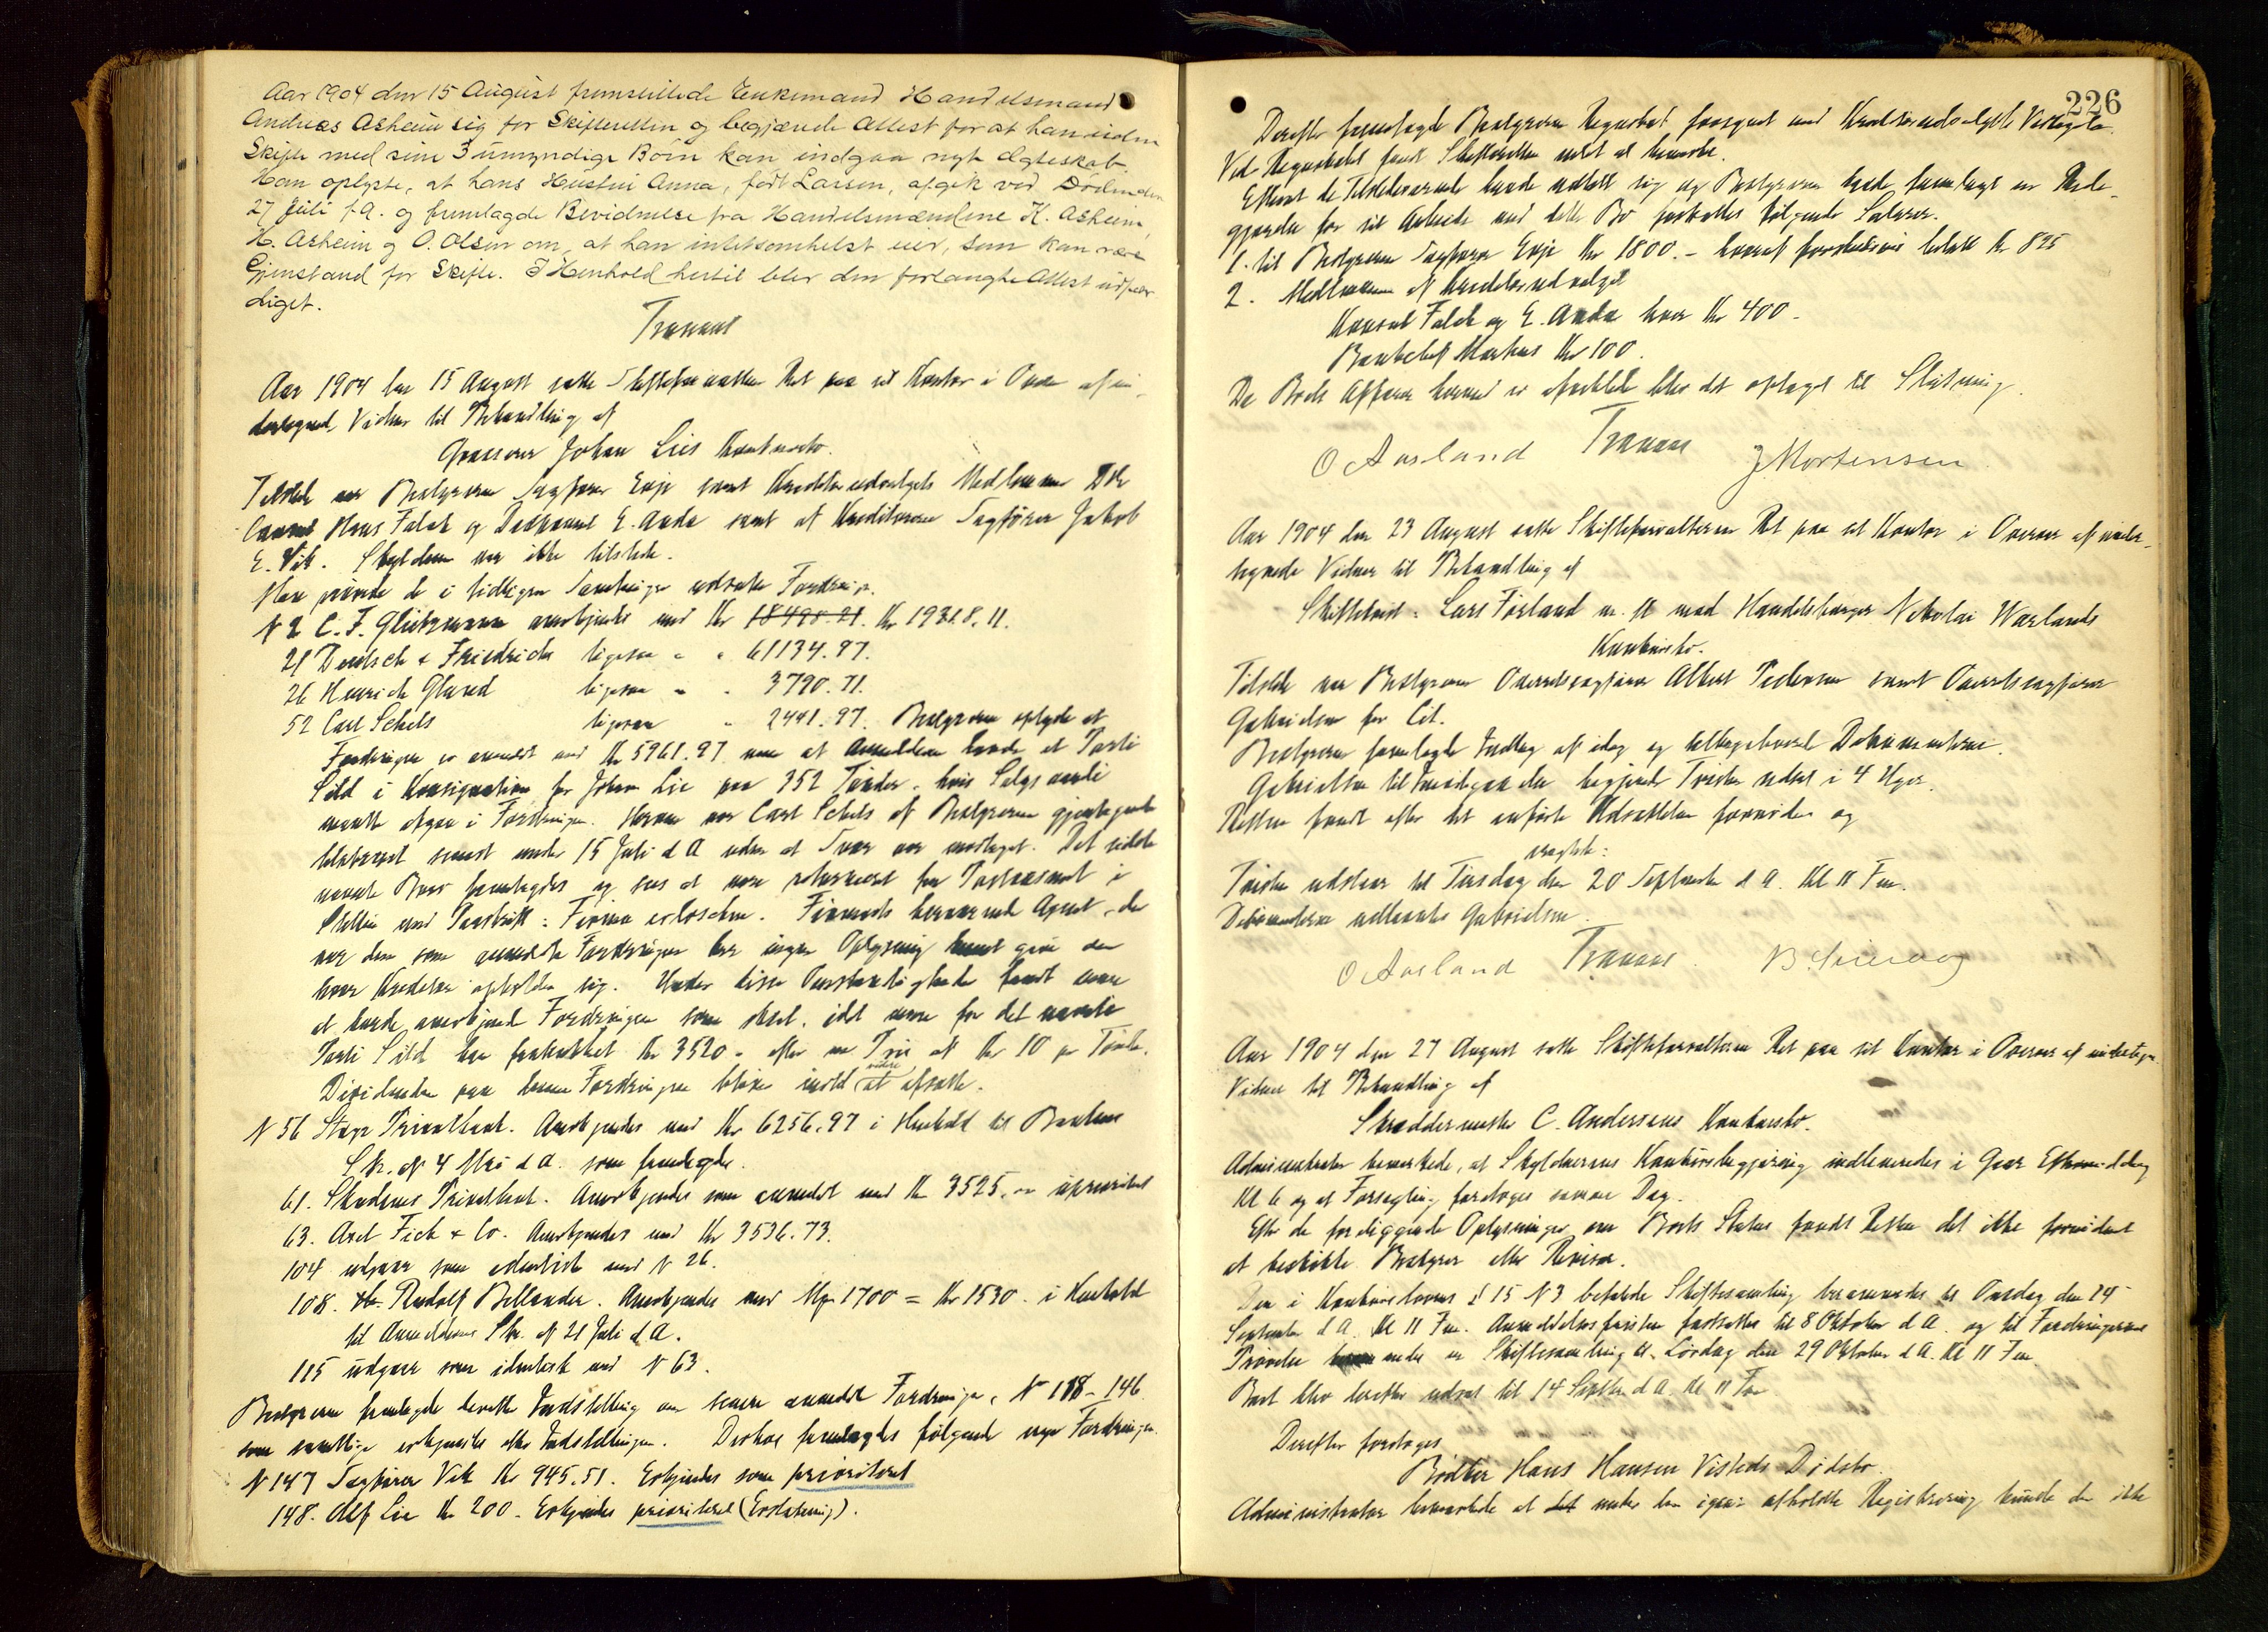 Aar 1904 den 15 August fremstillede Enkemand Handelsmand
Andreas Asheim sig for Skifteretten og begjærede Attest for at han uden
Skifte med sine 3 umyndige Børn kan indgaa nyt Ægteskab.
Han oplyste, at hans Hustru Anna, født Larsen, afgik ved Døden den
27 Juli f A. og fremlagde Bevidnelse fra Handelsmændene K. Asheim,
H. Asheim og O. Olsen om, at han intetsomhelst eier, som kan være
Gjenstand for Skifte. I Henhold hertil blev den forlangte Attest udfær
diget.
Tranaas
Aar 1904 den 15 August satte Skifteforvalteren Ret paa sit Kontor i Over af un-
dertegnede Vidner til Behandling af
Grosserer Johan Lies Konkursbo.
Tilstede var Bestyreren Sagfører Evje samt Kreditorudvalgets Medlemmer DHr
Consul Hans Falck og E. Anda samt af Kreditorerne Sagfører Jakob
E. Vik. Skyldneren var ikke tilstede.
Man prøvede de i tidligere Samlinger udsatte Fordringer.
N 2 C. F. Glützmann anerkjendes med Kr 18498.21. Kr 19318.11.
21 Deutsch & Friedrich ligesaa " " 61134.97.
26 Henrich Glared ligesaa " " 3790.71.
52 Carl Schels ligesaa " 2441.97. Bestyreren oplyste at
Fordringen er anmeldt med Kr 5961.97 men at Anmelderen havde et Parti
Sild i Konsignation for Johan Lie paa 352 Tønder, hvis Salgsværdi
maatte afgaa i Fordringen. Herom var Carl Schels af Bestyreren gjentagende
tilskrevet senest under 15 Juli d A uden at Svar var modtaget. Det sidst
nævnte Brev fremlagdes og sees at være returneret fra Postvæsenet i
Stettin med Paaskrift: Firma erloschen. Firmaets herværende Agent, der
var den som anmeldte Fordringen har ingen Oplysning kunnet give om
hvor Kreditor opholder sig. Under disse Omstændigheder fandt man
at burde anerkjende Fordringen som sket, idet man for det nævnte
Parti Sild har fratrukket Kr 3520 - efter en Pris af Kr 10 pr Tønde.
Dividenden paa denne Fordringen bliver indtil videre at afsætte.
N 56 Stavgr Privatbank. Anerkjendes med Kr 6256.97 i Henhold til Bankens
Skr. af 4 Mai d A. som fremlagdes.
61. Skudenes Privatbank. Anerkjendes som anmeldt med Kr 3525.00 uprioritert
63. Axel Fick & Co. Anerkjendes med Kr 3536.73.
104 udgaar som identisk med N 26.
108. Rudolf Bellander. Anerkjendes med Mk 1700 = Kr 1530. i Henhold
til Anmelderens Skr. af 21 Juli d A.
115 udgaar som identisk med N 63.
Bestyreren fremlagde derefter Indstilling om senere anmeldte Fordringer, No 118-146
som samtlige erkjendtes efter Indstillingen. Derhos fremlagdes følgende nye Fordringer.
N 147 Sagfører Vik Kr 945.51. Erkjendes som prioriteret
148. Alf Lie Kr 200. Erkjendes prioriteret (Erstatning).
226
Derefter fremlagde Bestyreren Regnskabet forsynet med Kreditorudvalgets Vedtagelse.
Ved Regnskabet fandt Skifteretten intet at bemærke.
Efterat de Tilstedeværende havde udtalt sig og Bestyreren havde fremlagt en Rede-
gjørelse for sit Arbeide med dette Bo fastsattes følgende Salærer.
1. til Bestyreren Sagfører Evje Kr 1800. - hvoraf forskudsvis betalt Kr 825
2. Medlemmer af Kreditorudvalget
Konsul Falck og E. Anda hver Kr 400 -
Bankchef Markus Kr 100.
Da Boets Affærer hermed er afviklede blev det optaget til Slutning.
O Aarland Tranaas J Mortensen
Aar 1904 den 23 August satte Skifteforvalteren Ret paa sit Kontor i Overvær af under-
tegnede Vidner til Behandling af
Skiftetvist: Lars Førland m. fl. mod Handelsborger Nikolai Warlands
Konkursbo.
Tilstede var Bestyreren Overretssagfører Albert Pedersen samt Overretssagfører
Gabrielsen for Cit.
Bestyreren fremlagde Indlæg af idag og tilbageleverede Dokumenterne.
Gabrielsen til Imødegaaelse begjærede Tvisten udsat i 4 Uger.
Retten fandt efter det anførte Udsættelsen fornøden og
eragtede:
Tvisten udstaar til Tirsdag den 20 September d A. Kl 11 Fm.
Dokumenterne udlaantes Gabrielsen.
O Aarland Tranaas
Aar 1904 den 27 August satte Skifteforvalteren Ret paa sit Kontor i Overvær af undertegn.
Vidner til Behandling af
Skræddermester C. Andersens Konkursbo.
Administrator bemærkede, at Skyldnerens Konkursbegjæring indleveredes i Gaar Eftermiddag
Kl 6 og at Forsegling foretoges samme Dag.
Efter de foreliggende Oplysninger om Boets Status fandt Retten det ikke fornødent
at beskikke Bestyrer eller Revisor.
Den i Konkurslovens § 15 N 3 befalede Skiftesamling berammedes til Onsdag den 14
September d A. Kl 11 Fm. Anmeldelsesfristen fastsattes til 8 Oktober d A. og til Fordringernes
Prøvelse en Skiftesamling til Lørdag den 29 Oktober d A. Kl 11 Fm.
Boet blev derefter udsat til 14 Septbr d A. Kl 11 Fm
Derefter foretoges
Bødker Hans Hansen Visteds Dødsbo.
Administrator bemærkede at det under den igaar afholdte Registrering kunde der ikke